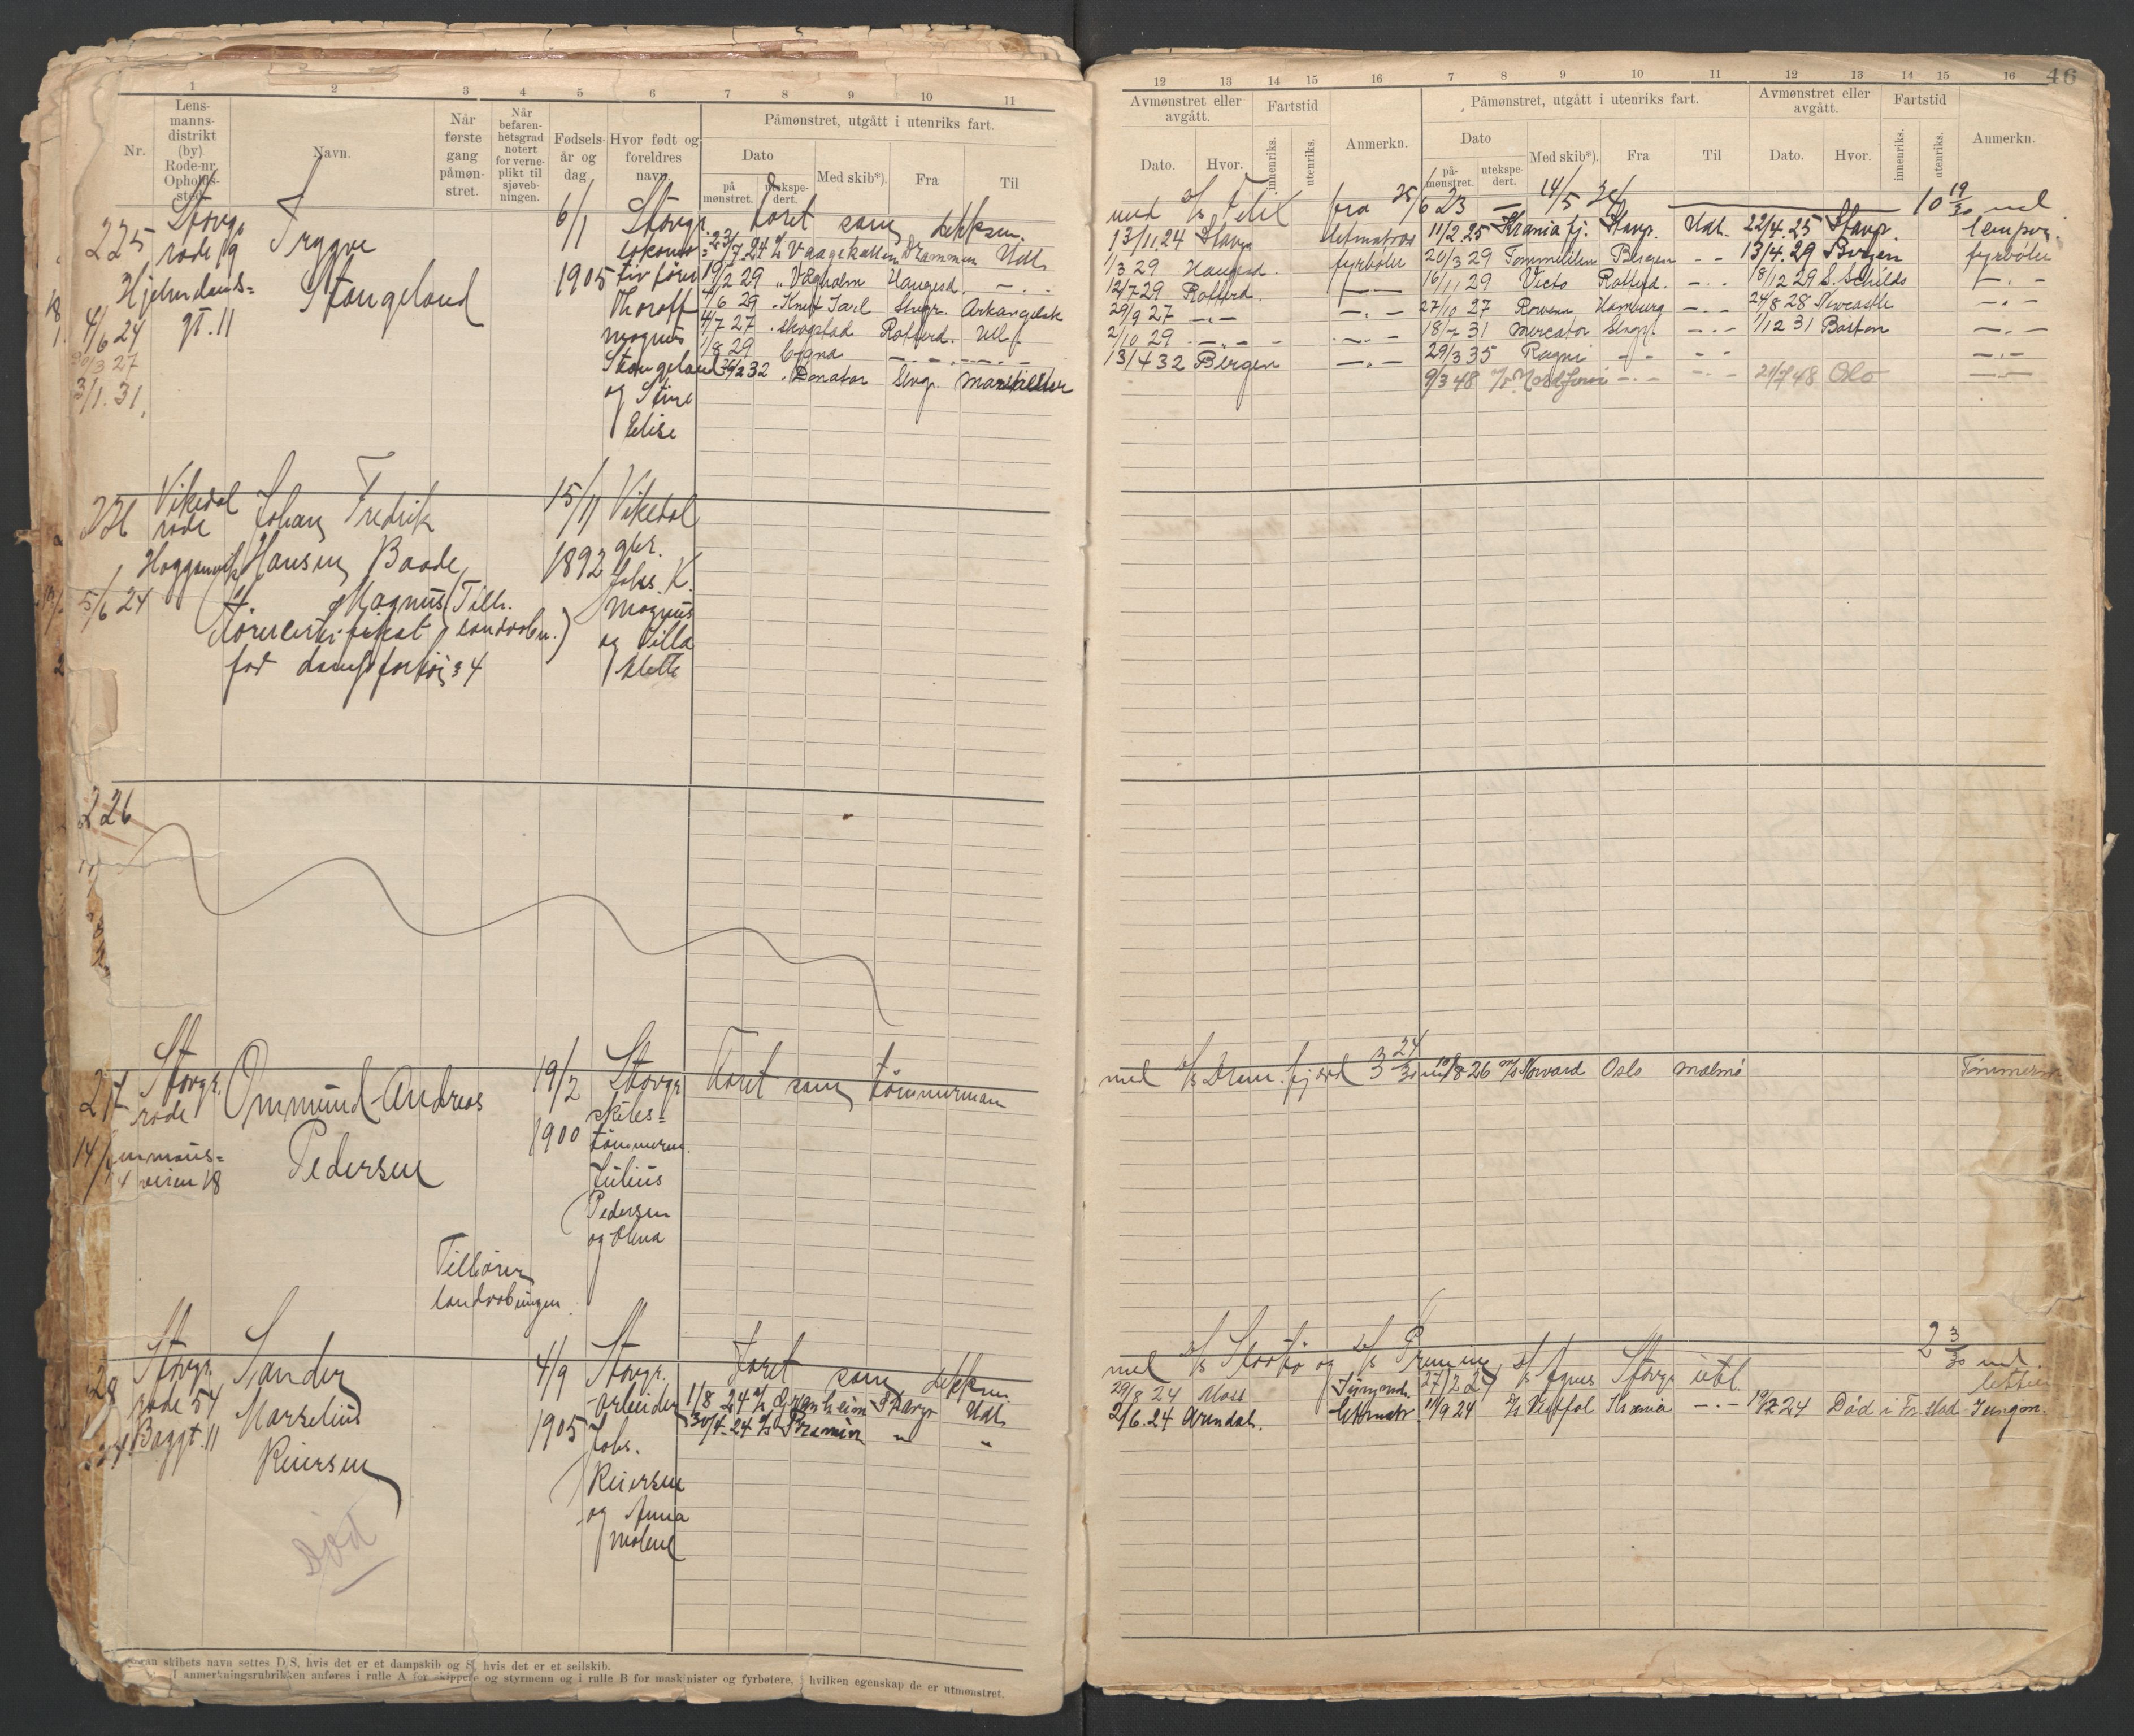 46
1 2 3 4 5 6 7 8 9 10 11
Nr.
Lens-
manns-
distrikt
(by)
Rode-nr.
Opholds-
sted.
Navn.
Når
første
gang
påmøn-
stret.
Når
befaren-
hetsgrad
notert
for verne-
plikt til
sjøveb-
ningen.
Fødsels-
år og
dag.
Hvor født og
foreldres
navn.
Påmønstret, utgått i utenriks fart.
Dato
på
mønstret.
utekspe-
dert.
Med skib*).
Fra
Til
225
Stavgr.
rode 19
Hjelmelands=
gt. 11
4/6 24
30/3 27
3/1. 31
Trygve
Stangeland
6/1
1905
Stavgr.
lokomo=
tivfører
Thoralf
Magnus
Stangeland
og Stine
Elise
Faret som dekksm.
23/7 24 Vaagekallen Drammen Udl.
19/2 29 Haugesd. -.-
4/6 29 Knut Jarl Stvgr. Arkangelsk
4/7 27 Skogstad Rotterd. Utl.
1/8 29 Cygna -.-
26/2 32 Donator Stvgr.
226
Vikedal
rode
5/6 24
Johan Fredrik
Hansen Baade
Magnus (Tilh.
landvebn.)
for dampfartøi 34
15/11
1892
Vikedal
gbr.
Johs. K.
Magnus
og Silla
Mette
226
27
Stavgr.
rode
Emmaus=
veien 18
14/
Ommund Andreas
Pedersen
Tilhører
landvebningen.
19/2
1900
Stavgr.
skibs=
tømmerm.
Julius
Pedersen
og Olena
Faret som tømmermann
28
Stavgr.
rode 54
Baggt. 11
Sander
Marselius
Reiersen
Død
4/9
1905
Stavgr.
arbeider
Johs.
Reiersen
og Anna
Malene
Faret som dekksm.
1/8 24 Stavgr Udl.
30/4 24 Framnes " "
foran skibets navn settes D/S, hvis det er et dampskib og S, hvis det er et seilskib.
I anmerkningsrubrikken anføres i rulle A for skippere og styrmenn og i rulle B for maskinister og fyrbøtere, i hvilken egenskap de er utmønstret.
12 13 14 15 16 7 8 9 10 11 12 13 14 15 16
Avmønstret eller
avgått.
Dato.
Hvor.
Fartstid
innenriks.
utenriks.
Anmerkn.
Påmønstret, utgått i utenriks fart.
Dato
på-
mønstret.
utekspe-
dert.
Med skib*).
Fra
Til
Avmønstret eller
avgått.
Dato.
Hvor.
Fartstid
innenriks.
utenriks.
Anmerkn.
med D/S Felix fra 25/6 23 — 14/5 24 10 19/30 md
13/11 24 Stavgr letmatros 11/2 25 Krania fj. Stavgr. Udl. 22/4. 25 Stavgr. lempor.
1/3 29 Haugesd. fyrbøter 20/3 29 Tommeliten Bergen -- 13/4. 29 Bergen fyrbøter
12/7 29 Rotterd. -- 16/11 29 Victo Rotterd. -.- 18/12 29 S. Schilds -.-
29/9 27 -.- -.- 27/10 27 Rowena Hamburg -.- 24/8 28 Newcastle -.-
2/10 29 -.- -.- 18/2 31 Mercator Stvgr. -.- 1/12 31 Boston -.-
13/4 32 Bergen -.- 29/3 35 Ragni -- -- -.-
9/3 48 -.- -.- 21/7 48 Oslo -.-
med D/S Dram. fjord 3 24/30 md 10/8 26 M/S Norvard Oslo Malmö Tømmerm
med D/S og D/S D/S Agnes Stavgr. utl. 2 3/30 md.
29/8 24 Moss Jungmdr. 27/2 24 letter
2/6. 24 Arendal. letmatr 11/9 24 D/S Vestfol Krania -.- 19/12 24 Død i Fr.stad Jungm.